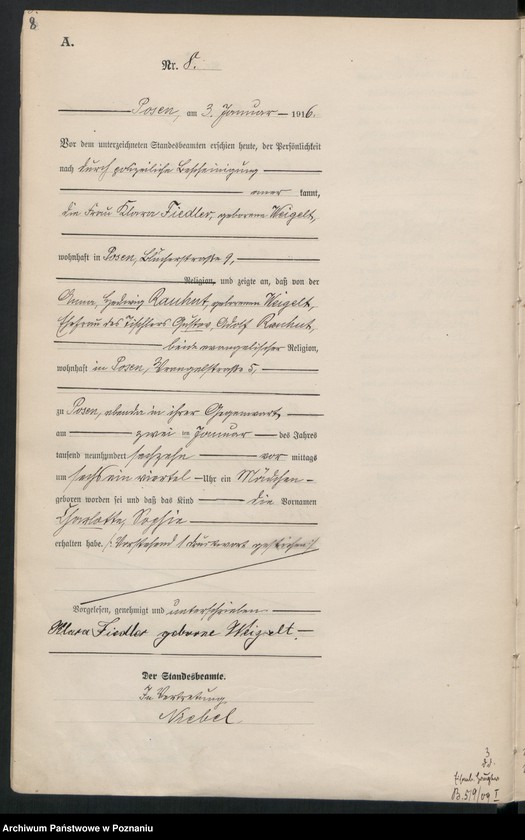 8
A.
Nr. 8.
Posen, am 3. Januar 1916.
Vor dem unterzeichneten Standesbeamten erschien heute, der Persönlichkeit
nach durch polizeiliche Bescheinigung
aner kannt,
die Frau Klara Fiedler, geborene Weigelt,
wohnhaft in Posen, Blücherstraße 9,
Religion, und zeigte an, daß von der
Anna, Hedwig Rauhut, geborenen Weigelt,
Ehefrau des Tischlers Gustav, Adolf Rauhut,
beide evangelischer Religion,
wohnhaft in Posen, Wrangelstraße 5,
zu Posen, ebenda in ihrer Gegenwart
am zwei ten Januar des Jahres
tausend neunhundert sechzehn vor mittags
um sechs ein viertel Uhr ein Mädchen
geboren worden sei und daß das Kind die Vornamen
Charlotte, Sophie
erhalten habe. Vorstehend 1 Druckwort gestrichen.
Vorgelesen, genehmigt und unterschrieben
Klara Fiedler geborne Weigelt.
Der Standesbeamte.
In Vertretung
Niebel
3
B. 519/09 I
Archiwum Państwowe w Poznaniu